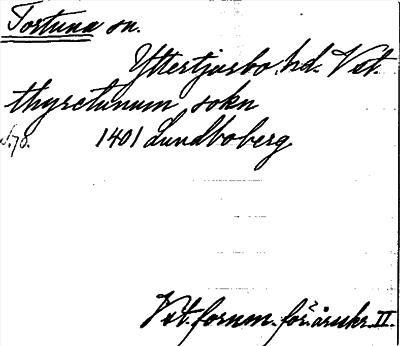 Tortuna sn.
Yttertjurbo hd. Vst.
thyrctunum sokn
s. 78. 1401 Lundboberg
Vst. fornm. för. årsskr. II.